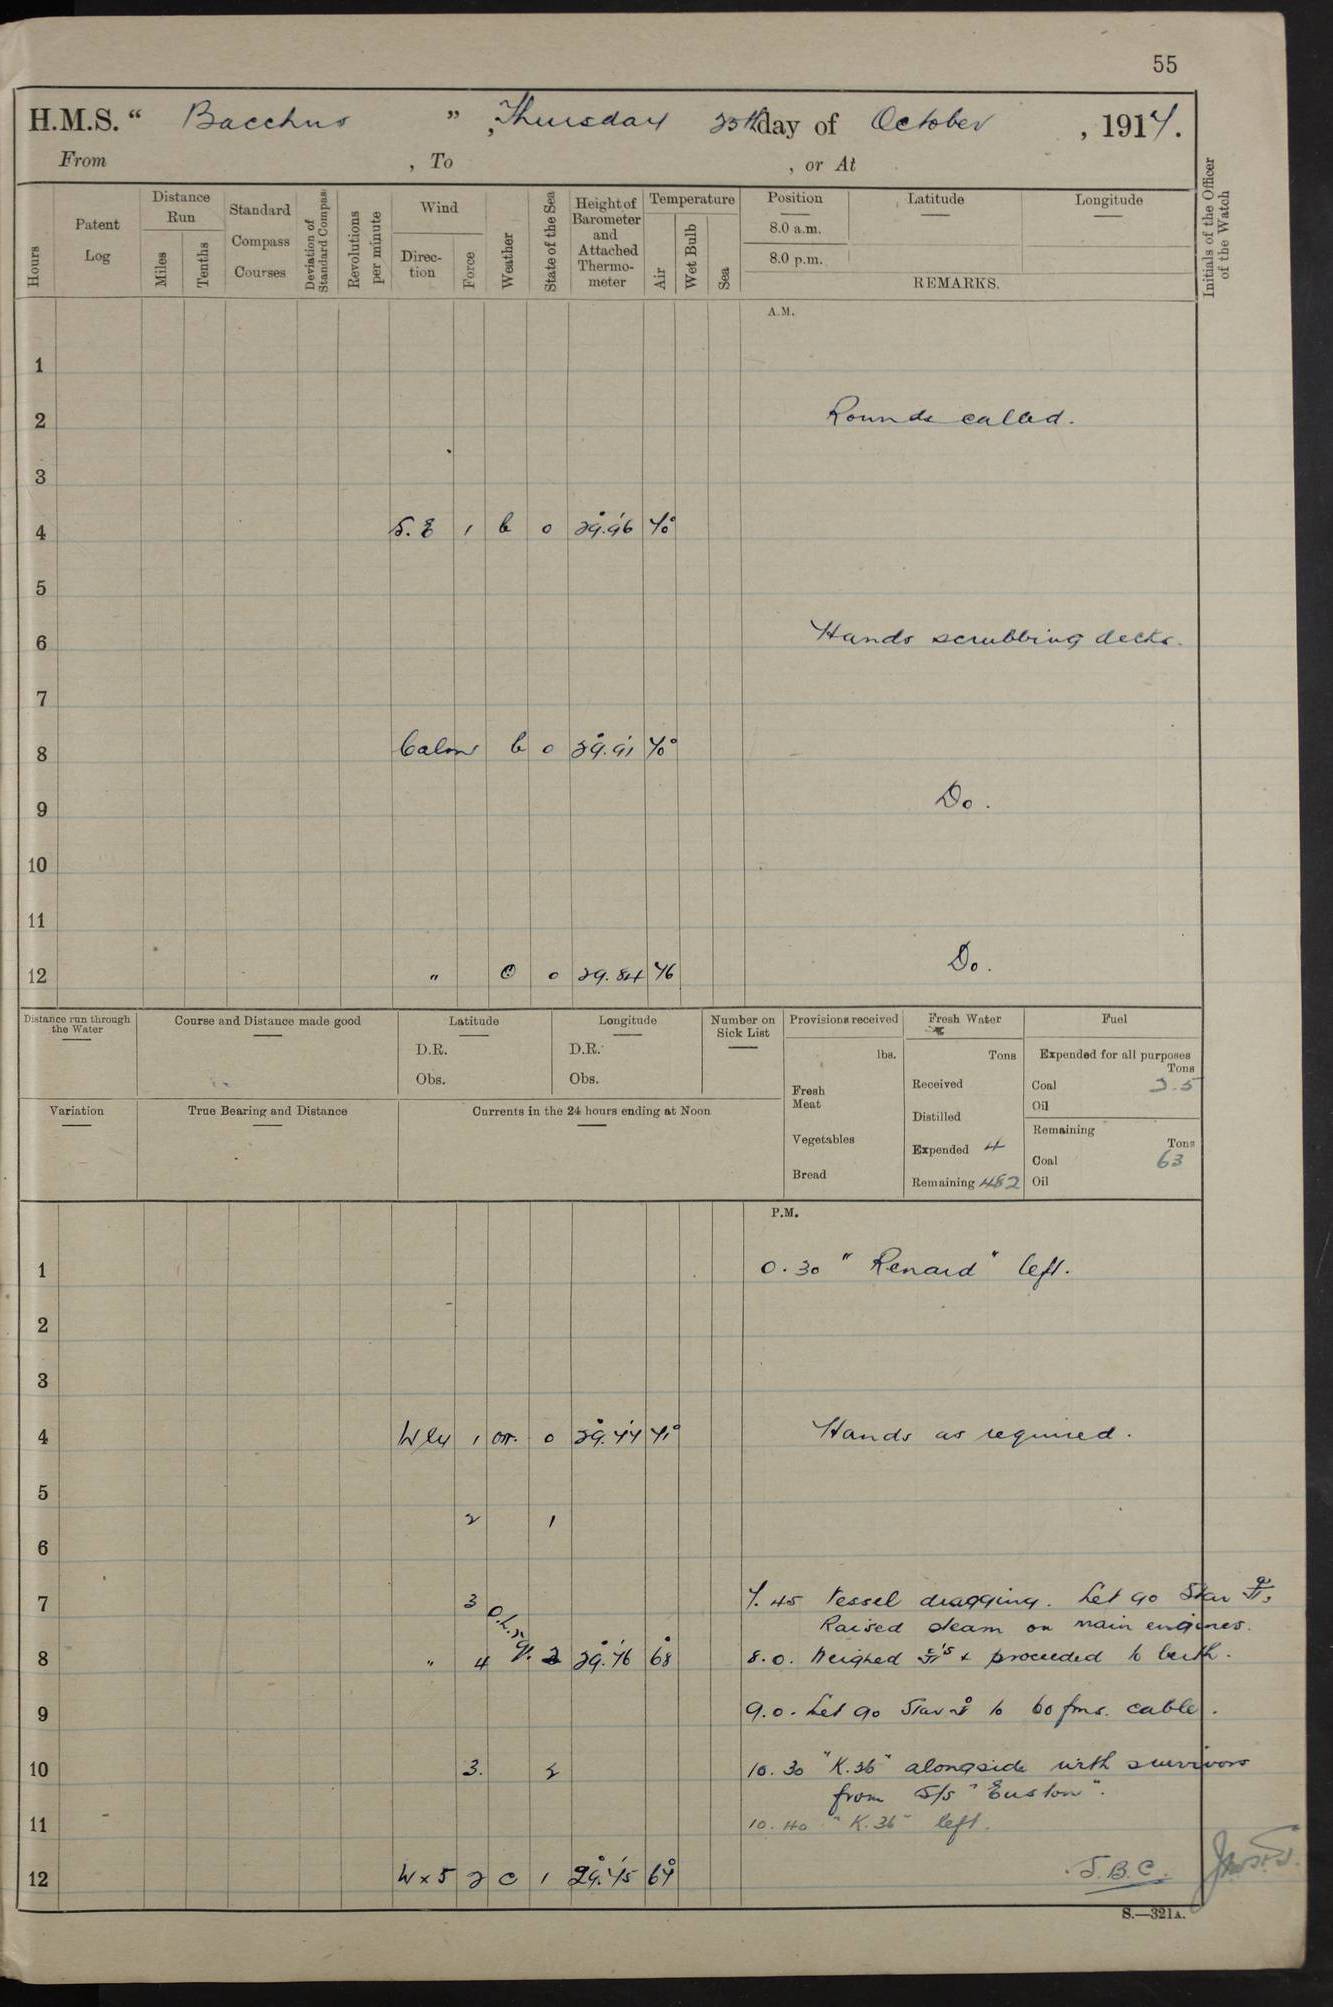 55
H.M.S. “ Bacchus ” , Thursday 25th day of October , 1917.
From , To , or At
Hours
Patent Log
Distance Run
Miles
Tenths
Standard Compass Courses
Deviation of Standard Compass
Revolutions per minute
Wind
Direction
Force
Weather
State of the Sea
Height of Barometer and Attached Thermometer
Temperature
Air
Wet Bulb
Sea
Position
8.0 a.m.
8.0 p.m.
Latitude
Longitude
REMARKS.
Initials of the Officer of the Watch
A.M.
1
2 Rounds called.
3
4 S.E 1 b 0 29.96 70°
5
6 Hands scrubbing decks.
7
8 Calm b 0 29.91 70°
9 Do.
10
11
12 " C 0 29.84 76 Do.
Distance run through the Water
Course and Distance made good
Latitude
D.R.
Obs.
Longitude
D.R.
Obs.
Number on Sick List
Provisions received
lbs.
Fresh Meat
Vegetables
Bread
Fresh Water
Tons
Received
Distilled
Expended 4
Remaining 482
Fuel
Expended for all purposes
Tons
Coal 3.5
Oil
Remaining
Tons
Coal 63
Oil
Variation
True Bearing and Distance
Currents in the 24 hours ending at Noon
P.M.
1 0.30 "Renard" left.
2
3
4 Wly 1 or. 0 29.77 71° Hands as required.
5
2 1
6
7 3 7.45 Vessel dragging. Let go Star
Raised steam on main engines.
8 " 4 o.l.r. q. 2 29.76 68° 8.0. Weighed & proceeded to berth.
9 9.0. Let go Star to 60 fms. cable.
10 3. 2 10.30 "K.36" alongside with survivors
from S/S "Euston".
11 10.40 "K.36" left.
12 W x S 2 C 1 29.75 67° J.B.C.
S.—321A.